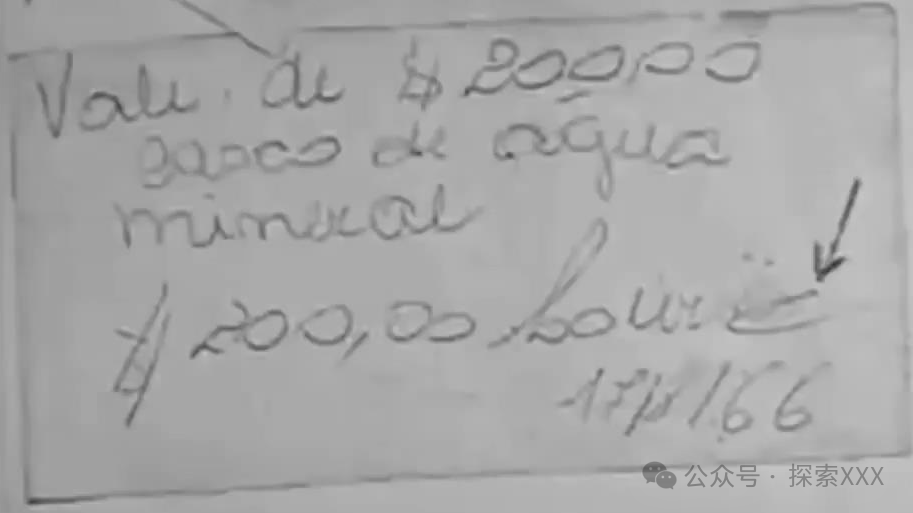 Vale. de $ 200,00
casco de água
mineral
$ 200,00
17/8/66
公众号 · 探索XXX